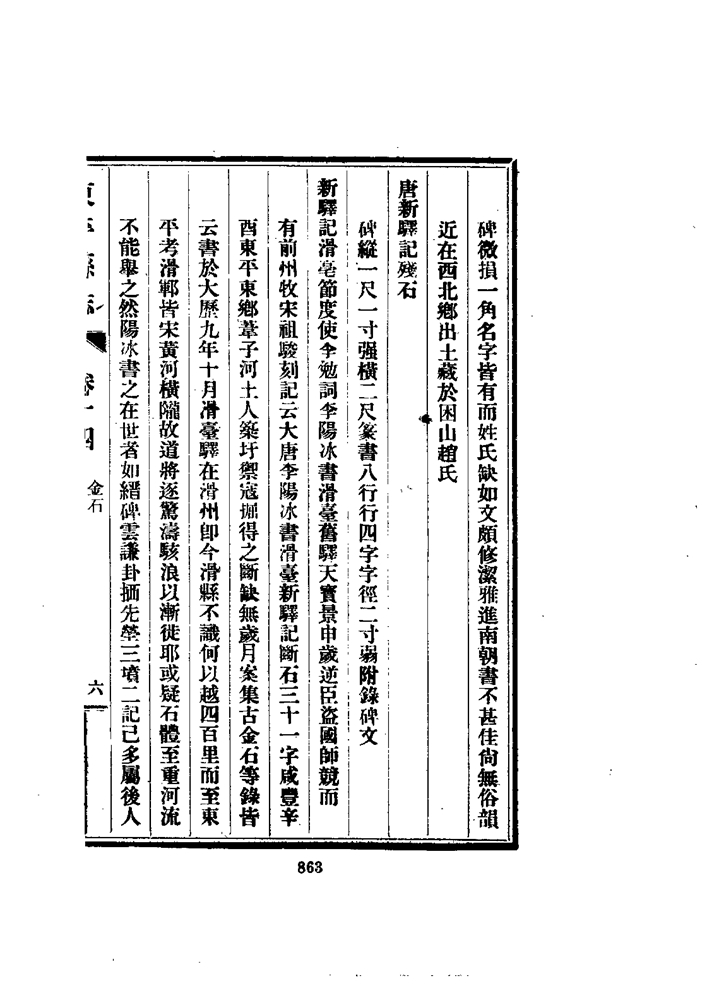 碑微損一角名字皆有而姓氏缺如文頗修潔雅進南朝書不甚佳尙無俗韻
近在西北鄉出土藏於困山趙氏
唐新驛記殘石
碑縱一尺一寸强橫二尺篆書八行行四字字徑二寸弱附錄碑文
新驛記滑亳節度使李勉詞李陽冰書滑臺舊驛天寶景申歲逆臣盜國師競而
有前州牧宋祖駿刻記云大唐李陽冰書滑臺新驛記斷石三十一字咸豐辛
酉東平東鄉葦子河土人築圩禦寇掘得之斷缺無歲月案集古金石等錄皆
云書於大歷九年十月滑臺驛在滑州卽今滑縣不識何以越四百里而至東
平考滑鄆皆宋黃河橫隴故道將逐驚濤駭浪以漸徙耶或疑石體至重河流
不能舉之然陽冰書之在世者如縉碑雲謙卦捪先塋三墳二記已多屬後人
東平縣志 卷十四 金石 六
863